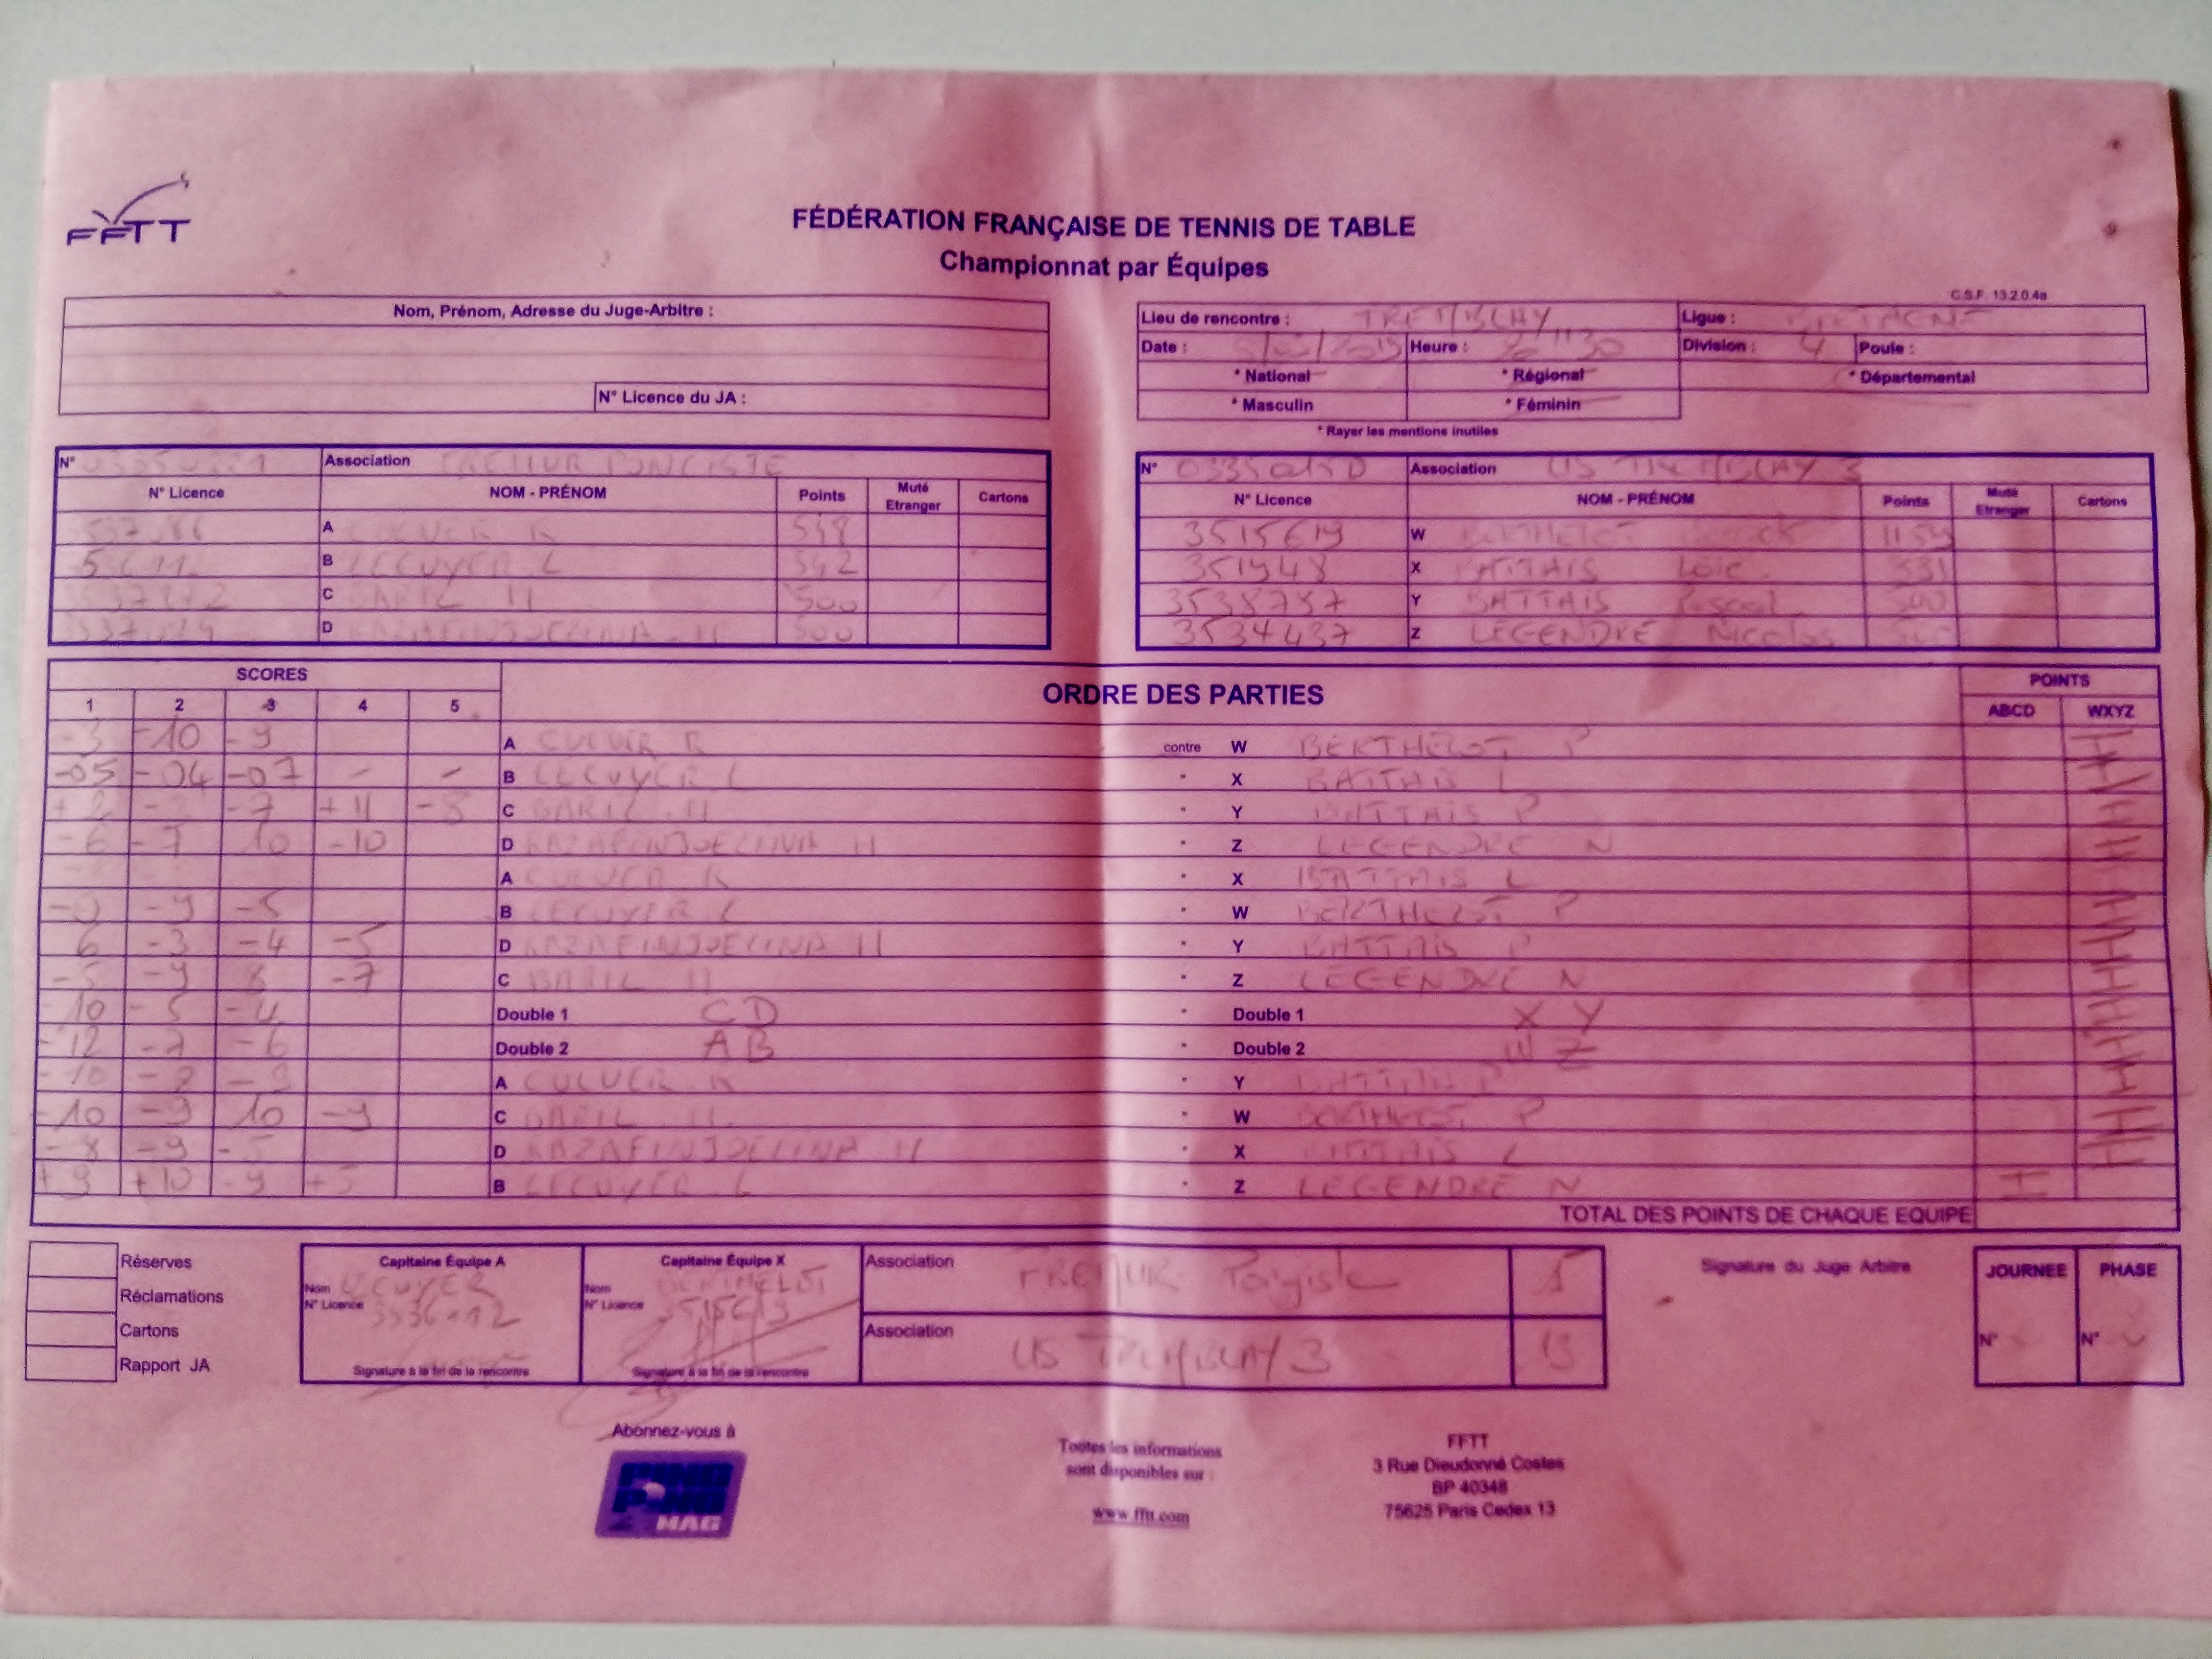 FFTT
FÉDÉRATION FRANÇAISE DE TENNIS DE TABLE
Championnat par Équipes
C.S.F. 13.2.0.4a
Nom, Prénom, Adresse du Juge-Arbitre :
N° Licence du JA :
Lieu de rencontre : TREMBLAY Ligue : BRETAGNE
Date : Heure : 20H30 Division : 4 Poule :
* National * Régional * Départemental
* Masculin * Féminin
* Rayer les mentions inutiles
N° Association FREMUR PONGISTE
N° Licence NOM - PRÉNOM Points Muté Etranger Cartons
A CULVER R 548
B LECUYER L 542
C BARIL H 500
D RAZAFINJOELINA H 500
N° 03350150 Association US TREMBLAY 3
N° Licence NOM - PRÉNOM Points Muté Etranger Cartons
3515619 W BERTHELOT
351948 X BATTAIS Loïc
3538787 Y BATTAIS Pascal 500
3534437 Z LEGENDRE Nicolas
SCORES ORDRE DES PARTIES POINTS
1 2 3 4 5 ABCD WXYZ
-3 -10 -9 A CULVER R contre W BERTHELOT P
-05 -04 -07 - - B LECUYER L " X BATTAIS L
+2 -7 +11 -8 C BARIL H " Y BATTAIS P
-6 -7 10 -10 D RAZAFINJOELINA H " Z LEGENDRE N
A CULVER R " X BATTAIS L
-9 -5 B LECUYER L " W BERTHELOT P
6 -3 -4 -5 D RAZAFINJOELINA H " Y BATTAIS P
-5 -9 8 -7 C BARIL H " Z LEGENDRE N
-10 -5 -4 Double 1 CD " Double 1 XY
-12 -7 -6 Double 2 AB " Double 2 WZ
-10 -8 -9 A CULVER R " Y BATTAIS P
-10 -9 10 -9 C BARIL H " W BERTHELOT P
-8 -9 -5 D RAZAFINJOELINA H " X BATTAIS L
+9 +10 -9 +5 B LECUYER L " Z LEGENDRE N
TOTAL DES POINTS DE CHAQUE EQUIPE
Réserves
Réclamations
Cartons
Rapport JA
Capitaine Équipe A
Nom LECUYER
N° Licence
Signature à la fin de la rencontre
Capitaine Équipe X
Nom BERTHELOT
N° Licence 3515619
Signature à la fin de la rencontre
Association FREMUR Pongiste
Association US TREMBLAY 3 13
Signature du Juge Arbitre
JOURNEE PHASE
N° N°
Abonnez-vous à
PING PONG MAG
Toutes les informations
sont disponibles sur :
www.fftt.com
FFTT
3 Rue Dieudonné Costes
BP 40348
75625 Paris Cedex 13